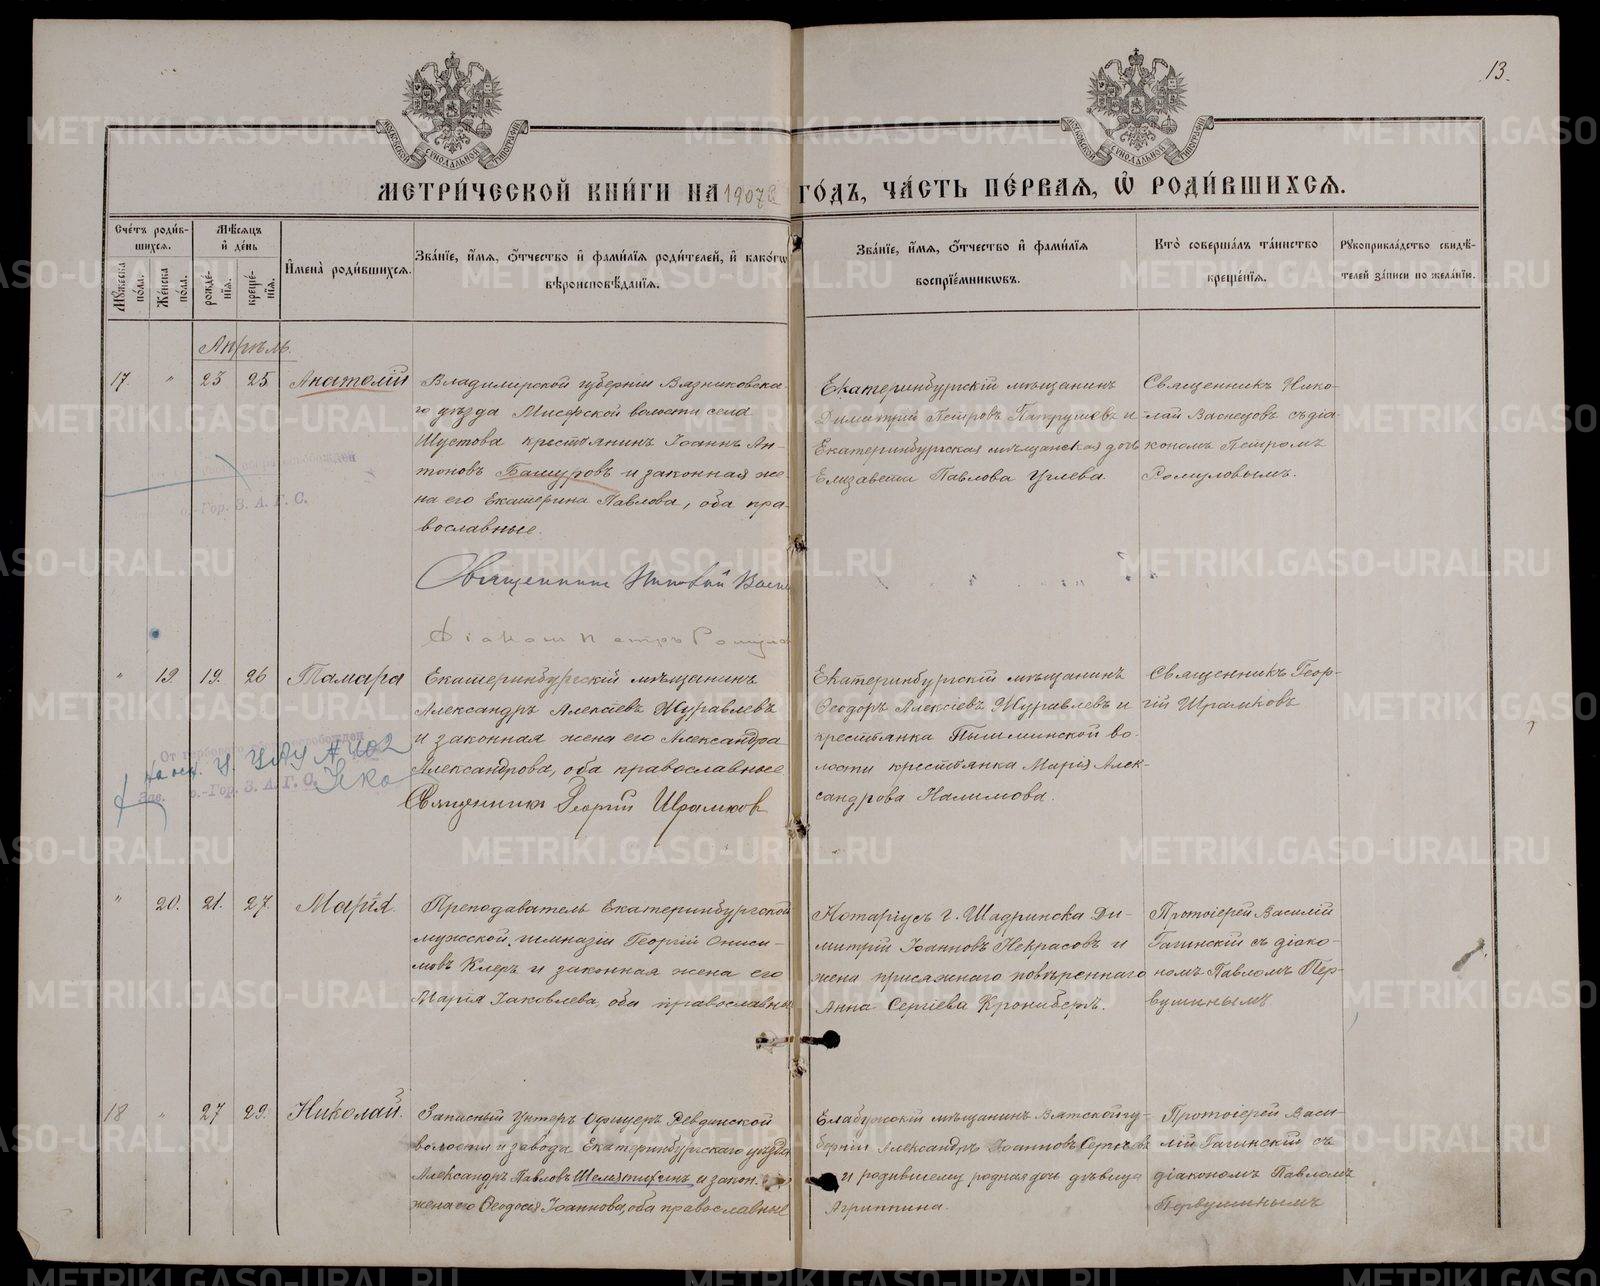 13.
МОСКОВСКОЙ СѴНОДАЛЬНОЙ ТИПОГРАФІИ
МОСКОВСКОЙ СѴНОДАЛЬНОЙ ТИПОГРАФІИ
МЕТРИ́ЧЕСКОЙ КНИ́ГИ НА 1907 ГО́ДЪ, ЧА́СТЬ ПЕ́РВАѦ, Ѡ҆ РОДИ́ВШИХСѦ.
Сче́тъ роди́в-
шихсѧ.
Мѹ́жеска по́ла.
Же́нска по́ла.
Мѣ́сѧцъ
и҆ де́нь
рожде́-
нїѧ.
креще́-
нїѧ.
И҆мена̀ роди́вшихсѧ.
Зва́нїе, и҆́мѧ, ѻ҆́тчество и҆ фами́лїѧ роди́телей, и҆ како́гѡ
вѣроисповѣ́данїѧ.
Зва́нїе, и҆́мѧ, ѻ҆́тчество и҆ фами́лїѧ
воспрїе́мниковъ.
Кто̀ соверша́лъ та́инство
креще́нїѧ.
Рѹкоприкла́дство свидѣ́-
телей за́писи по жела́нїю.
Апрѣль.
17. " 23 25 Анатолій
Владимирской губерніи Вязниковска-
го уѣзда Мисерской волости села
Шустова крестьянинъ Іоаннъ Ан-
тоновъ Башуровъ и законная же-
на его Екатерина Павлова, оба пра-
вославные.
Екатеринбургскій мѣщанинъ
Димитрій Петровъ и
Екатеринбургская мѣщанская дочь
Елизавета Павлова Углева.
Священникъ Нико-
лай Васнецовъ съ діа-
кономъ Петромъ
Ромуловымъ.
Гор. З. А. Г. С.
Священникъ Николай Васн
Діаконъ Петръ Ромуло
" 19. 19. 26 Тамара
Екатеринбургскій мѣщанинъ
Александръ Алексіевъ Журавлевъ
и законная жена его Александра
Александрова, оба православные
Священникъ Георгій Шрамков
Екатеринбургскій мѣщанинъ
Ѳеодоръ Алексіевъ Журавлевъ и
крестьянка Пышминской во-
лости крестьянка Марія Алек-
сандрова Налимова.
Священникъ Геор-
гій Шрамковъ
От гербового освобожден
Зав. Гор. З. А. Г. С.
" 20. 21. 27. Марія.
Преподаватель Екатеринбургской
мужской гимназіи Георгій Ониси-
мовъ Клеръ и законная жена его
Марія Іаковлева, оба православные
Нотаріусъ г. Шадринска Ди-
митрій Іоанновъ Некрасовъ и
жена присяжнаго повѣреннаго
Анна Сергіева Кронебергъ.
Протоіерей Василій
Гагинскій съ діако-
номъ Павломъ Пер-
вушинымъ
18 " 27 29. Николай.
Запасный Унтеръ Офицеръ Ревдинской
волости и завода Екатеринбургскаго уѣзда
Александръ Павловъ Шелятихинъ и закон.
жена его Ѳеодосія Іоаннова, оба православные
Елабужскій мѣщанинъ Вятской гу-
берніи Александръ Іоанновъ
и родившему родная дочь дѣвица
Агриппина.
Протоіерей Васи-
лій Гагинскій съ
діакономъ Павломъ
Первушинымъ
METRIKI.GASO-URAL.RU